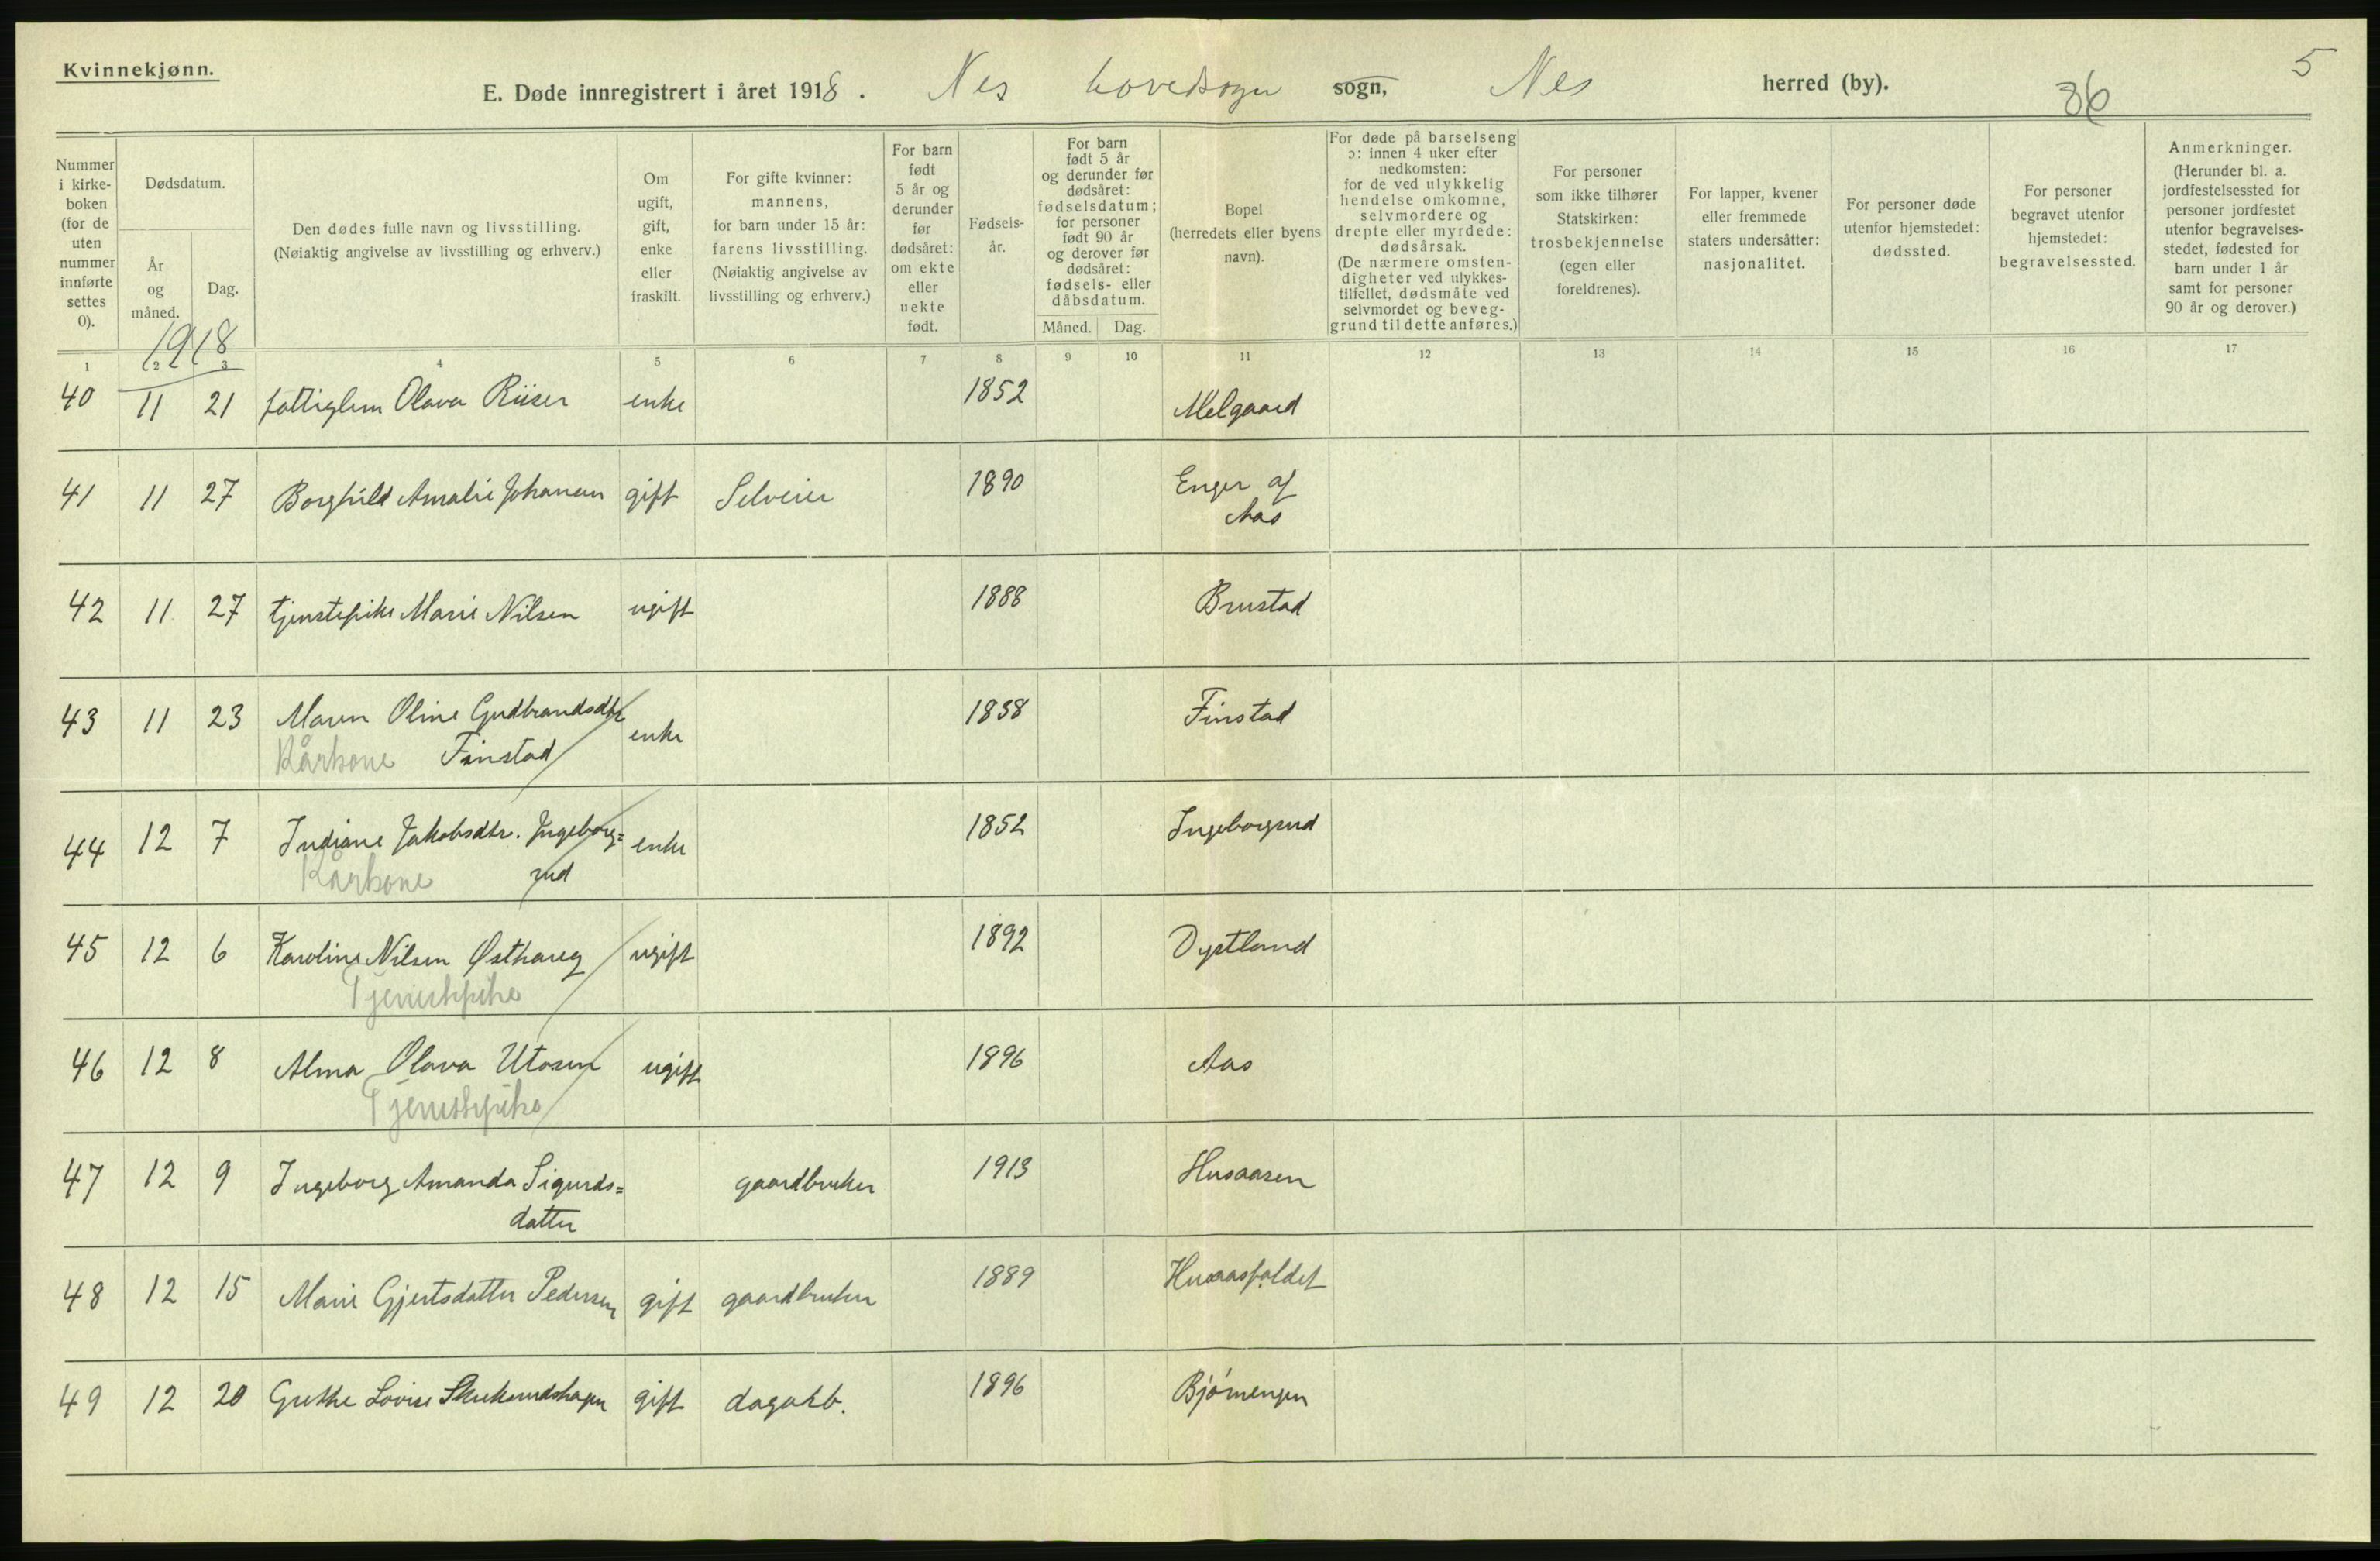 Kvinnekjønn.
5
E. Døde innregistrert i året 1918. Nes hovedsogn sogn, Nes herred (by). 36
Nummer i kirke-boken (for de uten nummer innførte settes 0).
Dødsdatum.
År og måned.
Dag.
Den dødes fulle navn og livsstilling. (Nøiaktig angivelse av livsstilling og erhverv.)
Om ugift, gift, enke eller fraskilt.
For gifte kvinner: mannens, for barn under 15 år: farens livsstilling. (Nøiaktig angivelse av livsstilling og erhverv.)
For barn født 5 år og derunder før dødsåret: om ekte eller uekte født.
Fødsels-år.
For barn født 5 år og derunder før dødsåret: fødselsdatum; for personer født 90 år og derover før dødsåret: fødsels- eller dåbsdatum.
Måned. Dag.
Bopel (herredets eller byens navn).
For døde på barselseng ɔ: innen 4 uker efter nedkomsten: for de ved ulykkelig hendelse omkomne, selvmordere og drepte eller myrdede: dødsårsak. (De nærmere omsten-digheter ved ulykkes-tilfellet, dødsmåte ved selvmordet og beveg-grund til dette anføres.)
For personer som ikke tilhører Statskirken: trosbekjennelse (egen eller foreldrenes).
For lapper, kvener eller fremmede staters undersåtter: nasjonalitet.
For personer døde utenfor hjemstedet: dødssted.
For personer begravet utenfor hjemstedet: begravelsessted.
Anmerkninger. (Herunder bl. a. jordfestelsessted for personer jordfestet utenfor begravelses-stedet, fødested for barn under 1 år samt for personer 90 år og derover.)
1918
1 2 3 4 5 6 7 8 9 10 11 12 13 14 15 16 17
40 11 21 fattiglem Olava Riiser enke 1852 Melgaard
41 11 27 Borghild Amalie Johansen gift Selveier 1890 Enger af
Aas
42 11 27 tjenstepike Marie Nilsen ugift 1888 Brustad
43 11 23 Maren Oline Gudbrandsdtr enke 1838 Finstad
Kårkone Finstad
44 12 7 Indiane Jakobsdtr. Ingeborg= enke 1852 Ingeborgrud
Kårkone rud
45 12 6 Karoline Nilsen Østhaug ugift 1892 Dystland
Tjenestepike
46 12 8 Alma Olava Utosen ugift 1896 Aas
Tjenestepike
47 12 9 Ingeborg Amanda Sigurds= gaardbruker 1913 Husaasen
datter
48 12 15 Marie Gjertsdatter Pedersen gift gaardbruker 1889 Husaasfaldet
49 12 20 Grethe Lovise gift dagarb. 1896 Bjørnengen